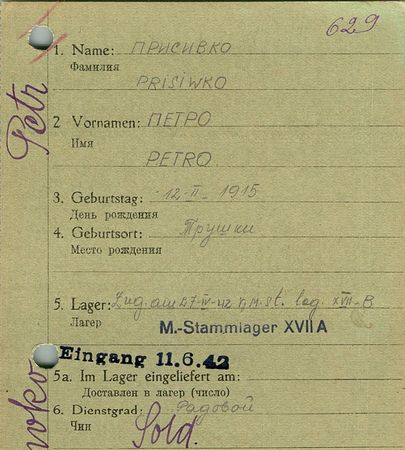 629
1. Name: ПРИСИВКО
Фамилия
PRISIWKO
2 Vornamen: ПЕТРО
Имя
PETRO
3. Geburtstag: 12-II- 1915
День рождения
4. Geburtsort: Трушки
Место рождения
5. Lager: Zug. am 27-IV-42 v. M. St. lag. XVII-B
Лагер
M.-Stammlager XVII A
Eingang 11.6.42
5a. Im Lager eingeliefert am:
Доставлен в лагер (число)
6. Dienstgrad: Радовой
Чин
Sold.
Petr